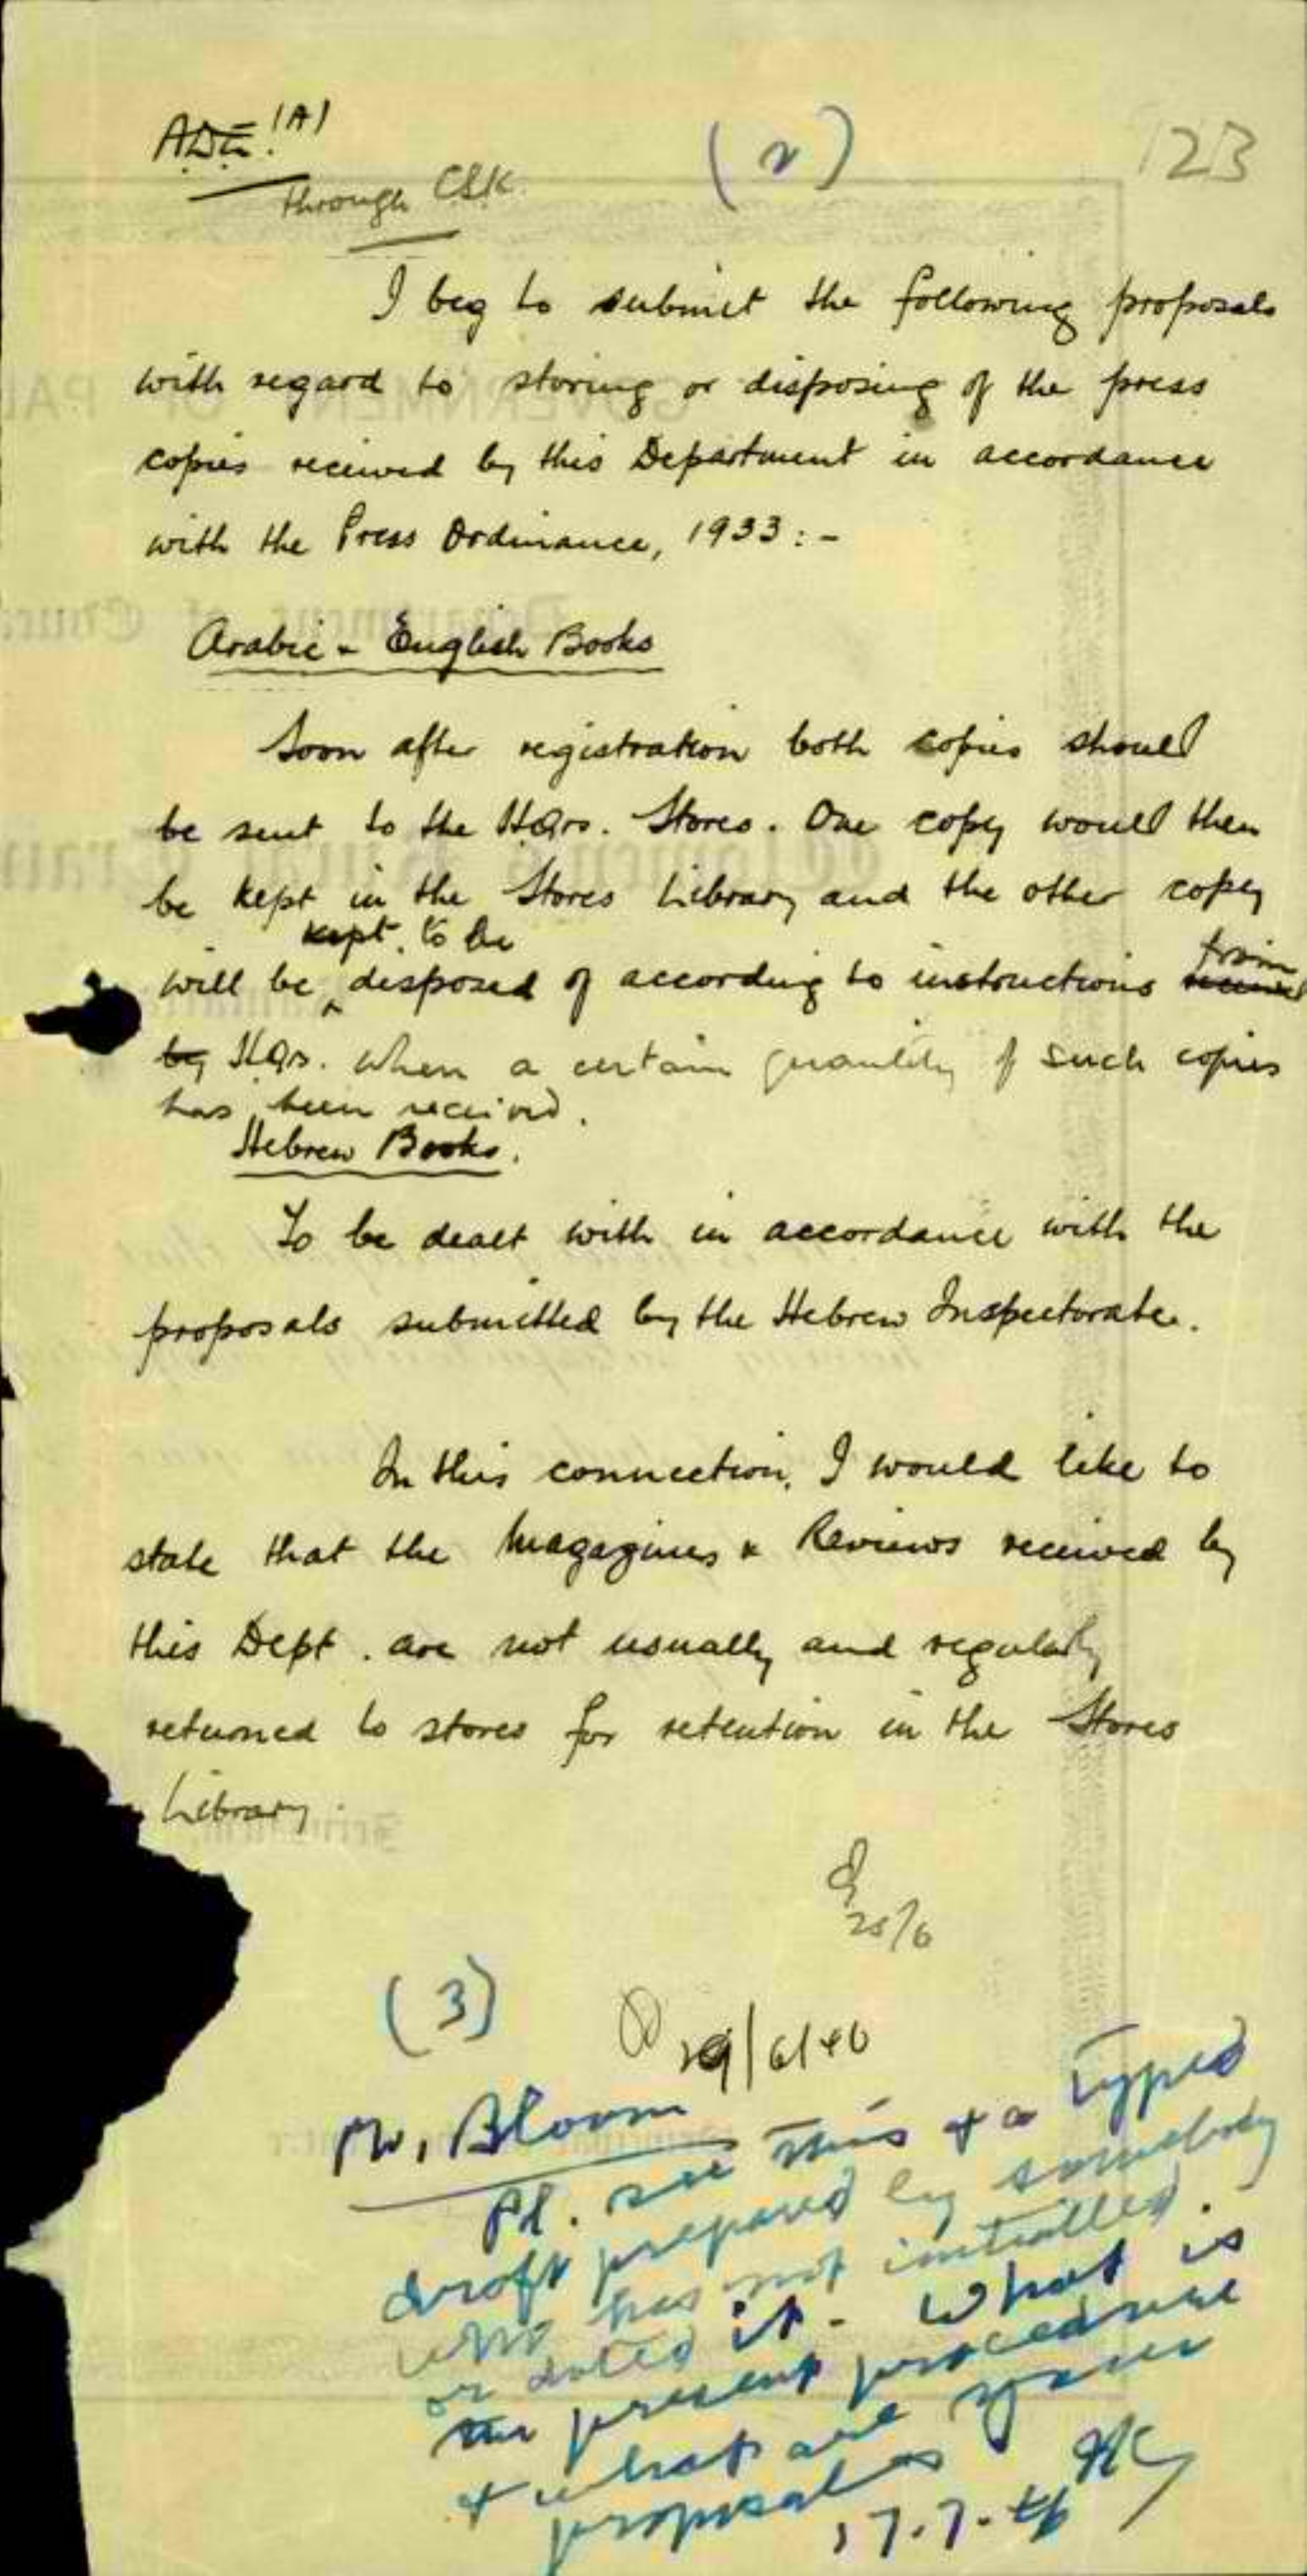 ADE. (A)
(2)
123
through C&K.
I beg to submit the following proposals
with regard to storing or disposing of the press
copies received by this Department in accordance
with the Press Ordinance, 1933:-
Arabic - English Books
Soon after registration both copies should
be sent to the HQrs. Stores. One copy would then
be kept in the Stores Library and the other copy
kept, to be
will be disposed of according to instructions from
by HQrs. when a certain quantity of such copies
has been received.
Hebrew Books.
To be dealt with in accordance with the
proposals submitted by the Hebrew Inspectorate.
In this connection, I would like to
state that the Magazines & Reviews received by
this Dept. are not usually and regularly
returned to stores for retention in the Stores
Library.
25/6
(3)
29/6/40
Mr. Bloom
Pl. see this & a typed
draft prepared by somebody
who has not initialled
or dated it. What is
the present procedure
& what are your
proposals
17.7.